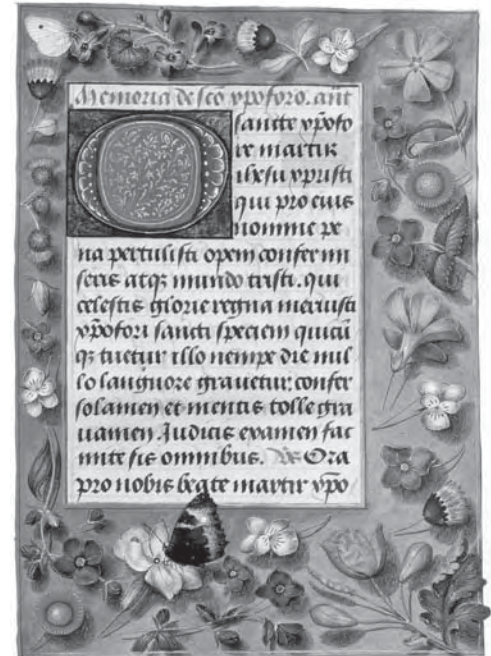 Memoria de sc̄o xp̄oforo. ant̄
O sancte xp̄ofo
re martir
ihesu xpristi
qui pro eius
nomine pe
na pertulisti opem confer mi
seris atqȝ mundo tristi. qui
celestis glorie regna meruisti
xp̄ofori sancti speciem quicū
qȝ tuetur illo nempe die nul
lo languore grauetur: confer
solamen et mentis tolle gra
uamen Judicis examen fac
mite sis omnibus. Vs̄ Ora
pro nobis beate martir xp̄o